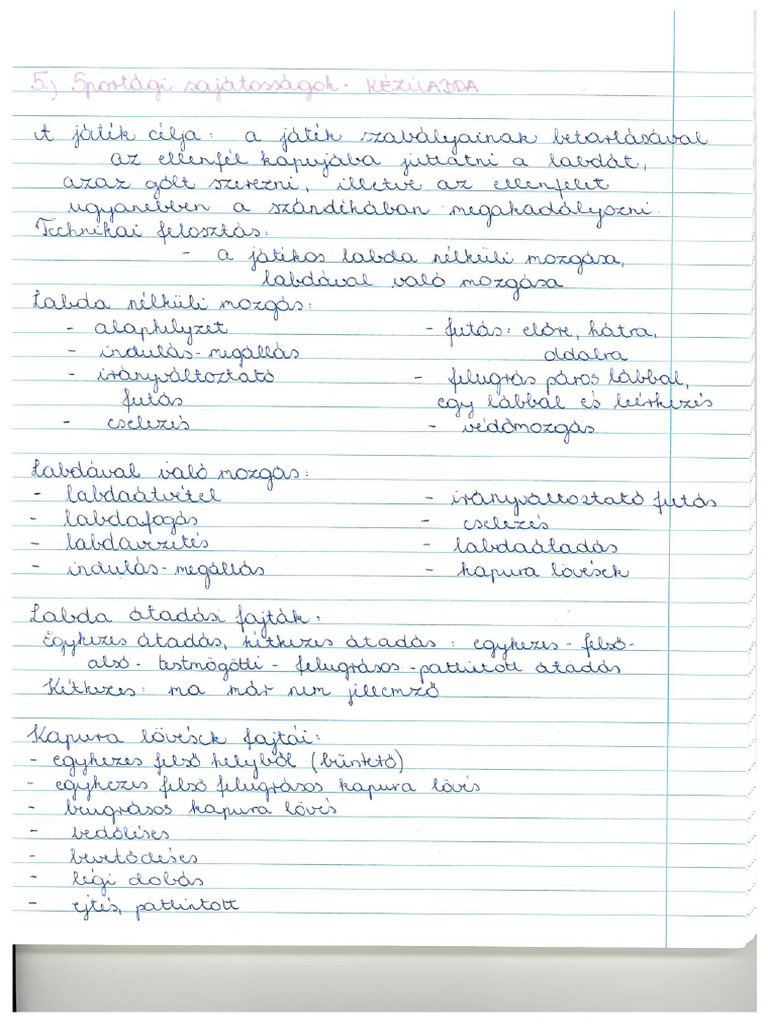 5.) Sportági sajátosságok. KÉZILABDA
A játék célja: a játék szabályainak betartásával
az ellenfél kapujába juttatni a labdát,
azaz gólt szerezni, illetve az ellenfelet
ugyanebben a szándékában megakadályozni.
Technikai felosztás:
- a játékos labda nélküli mozgása,
labdával való mozgása
Labda nélküli mozgás:
- alaphelyzet - futás: előre, hátra,
- indulás-megállás oldalra
- irányváltoztató - felugrás páros lábbal,
futás egy lábbal és leérkezés
- cselezés - védőmozgás
Labdával való mozgás:
- labdaátvétel - irányváltoztató futás
- labdafogás - cselezés
- labdavezetés - labdaátadás
- indulás-megállás - kapura lövések
Labda átadási fajták:
Egykezes átadás, kétkezes átadás: egykezes - felső-
alsó - testmögötti - felugrásos - pattintott átadás
Kétkezes: ma már nem jellemző
Kapura lövések fajtái:
- egykezes felső helyből (büntető)
- egykezes felső felugrásos kapura lövés
- beugrásos kapura lövés
- bedőléses
- bevetődéses
- légi dobás
- ejtés, pattintott